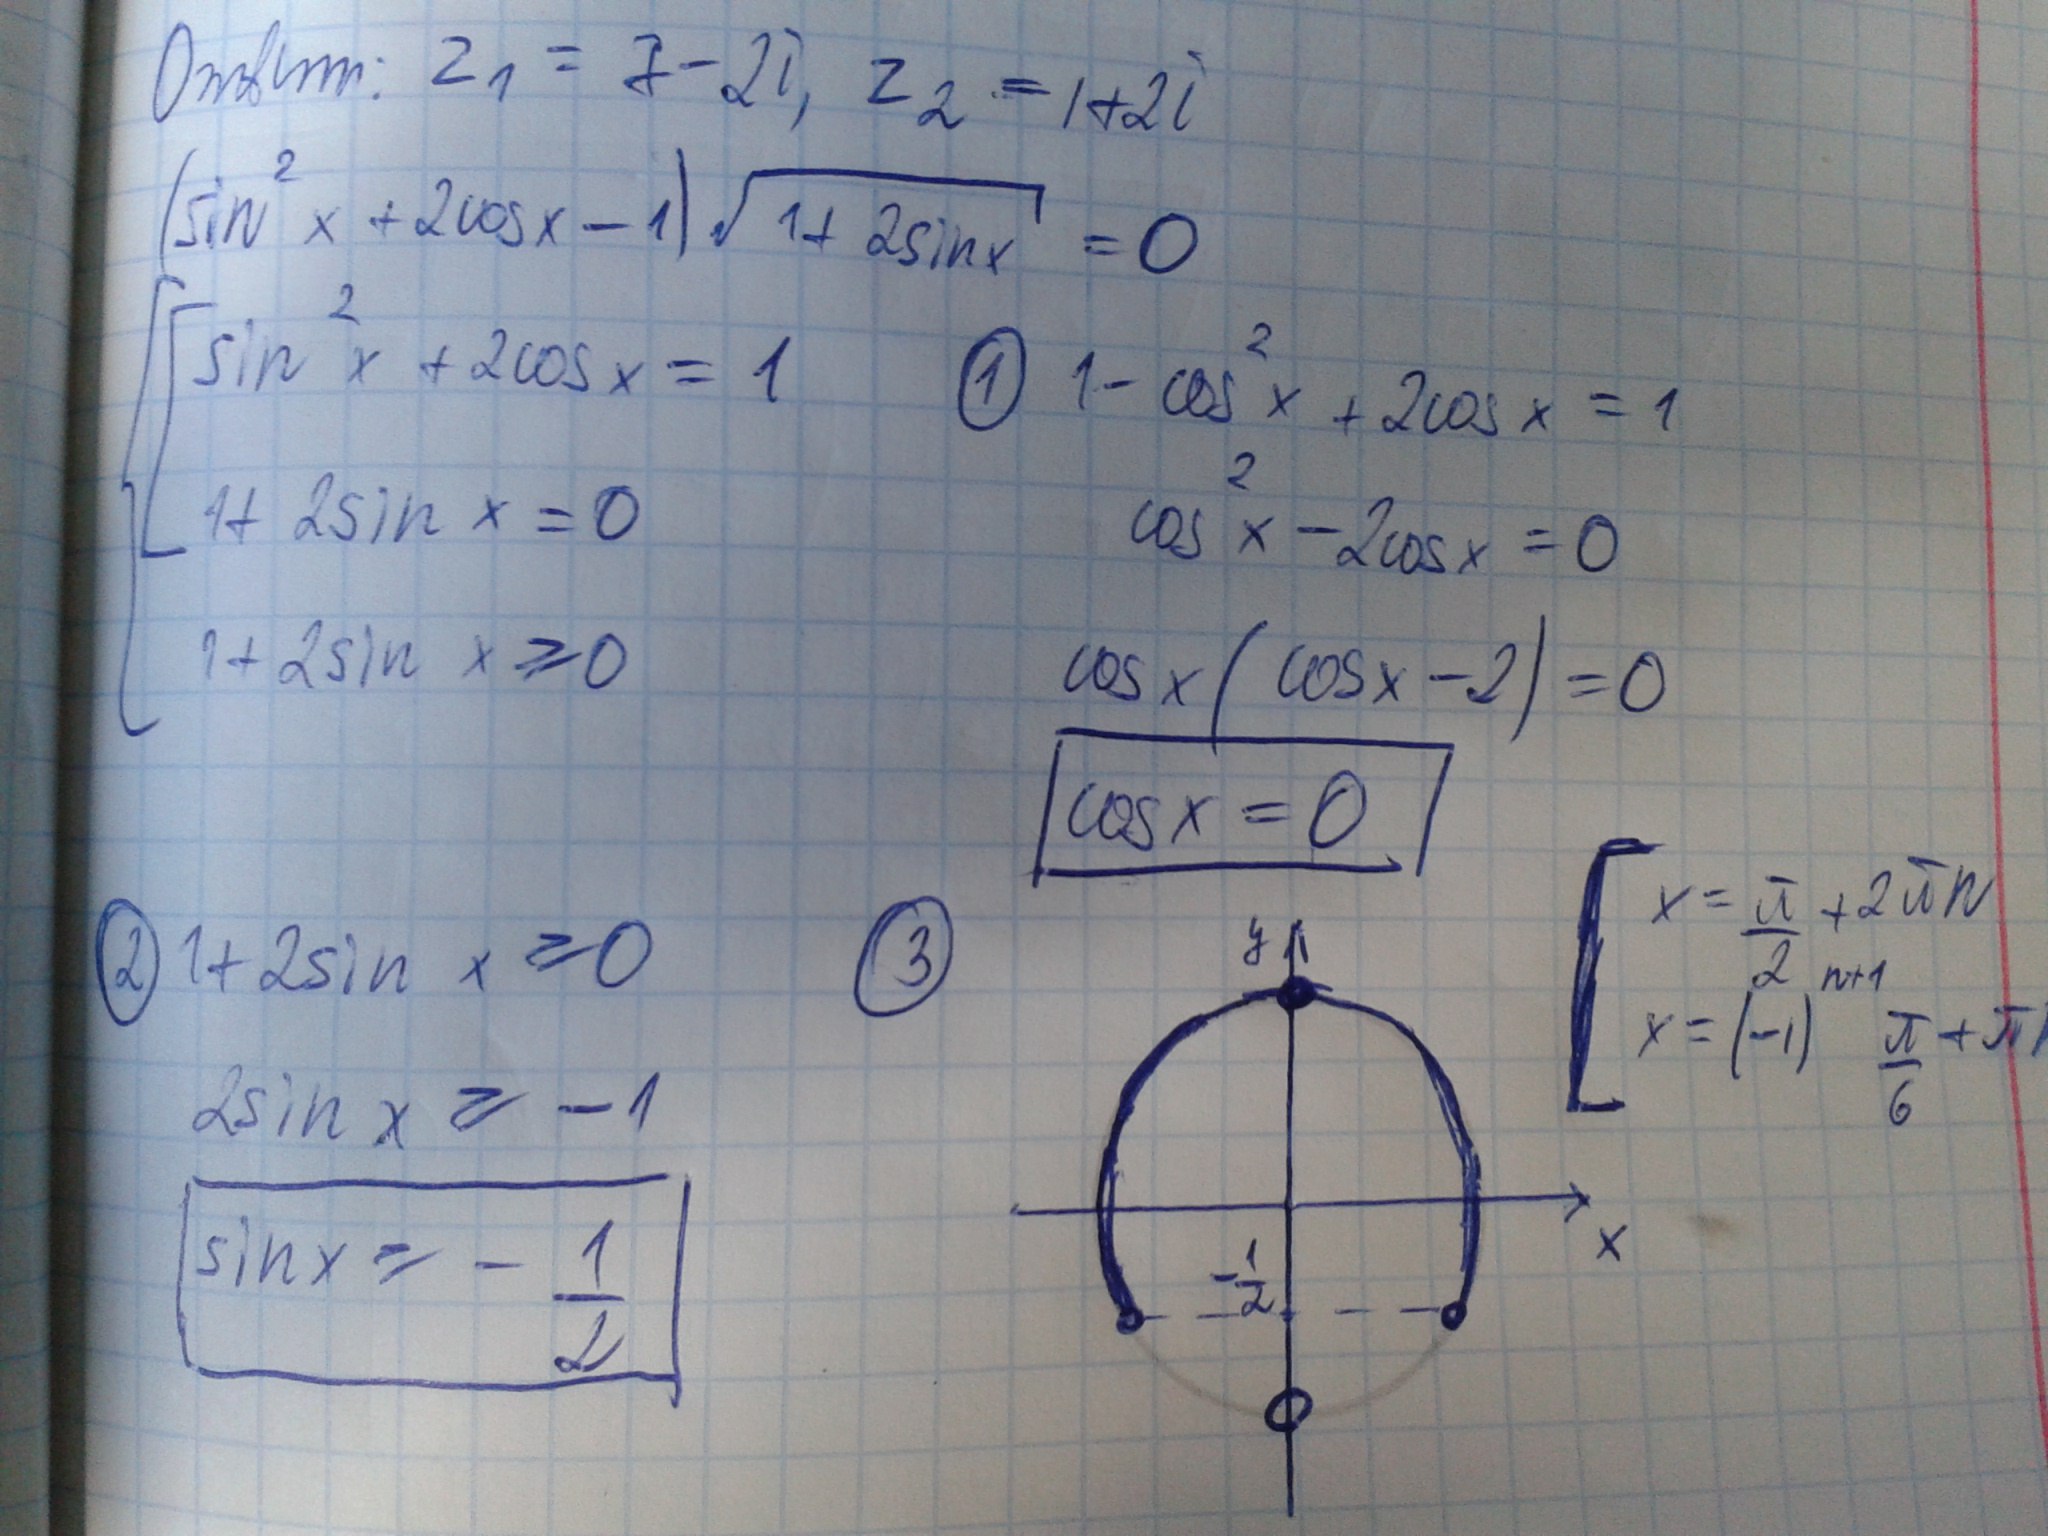 Ответ: z₁ = 7-2i, z₂ = 1+2i
(sin²x + 2cosx - 1)√(1+2sinx) = 0
sin²x + 2cosx = 1
1+2sin x = 0
1+2sin x ⩾ 0
① 1 - cos²x + 2cos x = 1
cos²x - 2cosx = 0
cos x (cosx - 2) = 0
cosx = 0
② 1+2sin x ⩾ 0
2sin x ⩾ -1
sinx ⩾ - 1/2
③
y
x
-1/2
x = π/2 + 2πn
x = (-1)ⁿ⁺¹ π/6 + πn